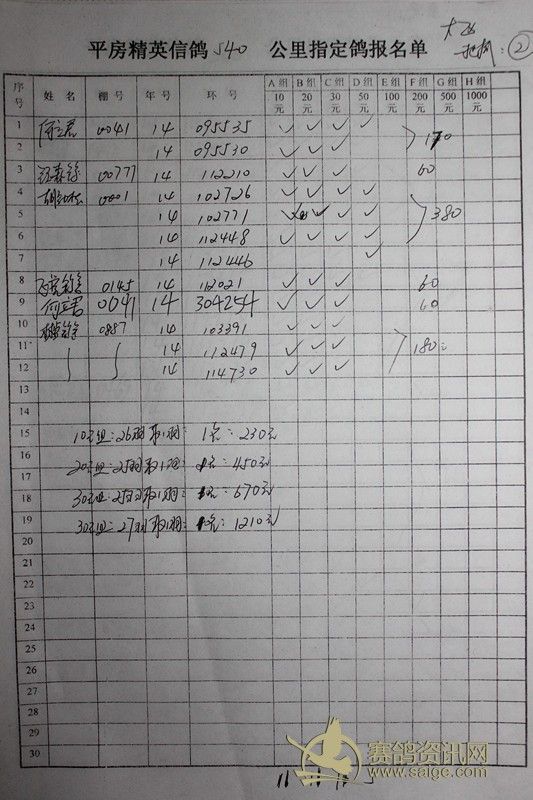 ②
平房精英信鸽 540 公里指定鸽报名单
序号 姓名 棚号 年号 环号 A组 10元 B组 20元 C组 30元 D组 50元 E组 100元 F组 200元 G组 500元 H组 1000元
1 0041 14 095535 ✓ ✓ ✓ ✓
2 14 095530 ✓ ✓ ✓ 170
3 00771 14 112210 ✓ ✓ ✓ 60
4 0001 14 102726 ✓ ✓ ✓ ✓
5 14 102771 ✓ ✓ ✓ ✓ 380
6 14 112448 ✓ ✓ ✓ ✓
7 14 112446 ✓
8 0145 14 112021 ✓ ✓ ✓ 60
9 何立君 0041 14 304254 ✓ ✓ ✓ 60
10 0887 14 103391 ✓ ✓ ✓
11 14 112479 ✓ ✓ ✓ 180
12 14 114730 ✓ ✓ ✓
13
14
15 10元组:26羽取1羽: 1名:230元
16
17 20元组:25羽取1羽: 1名:450元
18 30元组:25羽取1羽: 1名:670元
19 30元组:27羽取1羽: 1名:1210元
20
21
22
23
24
25
26
27
28
29
30
赛鸽资讯网
www.saige.com